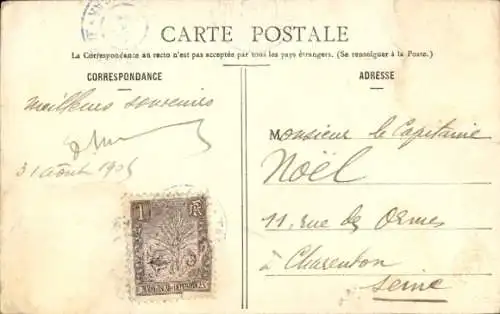 CARTE POSTALE
La Correspondance au recto n'est pas acceptée par tous les pays étrangers. (Se renseigner à la Poste.)
CORRESPONDANCE
ADRESSE
meilleurs souvenirs
31 août
Monsieur le Capitaine
Noël
11, rue des Ormes
à Charenton
Seine
1
MADAGASCAR ET DÉPENDANCES